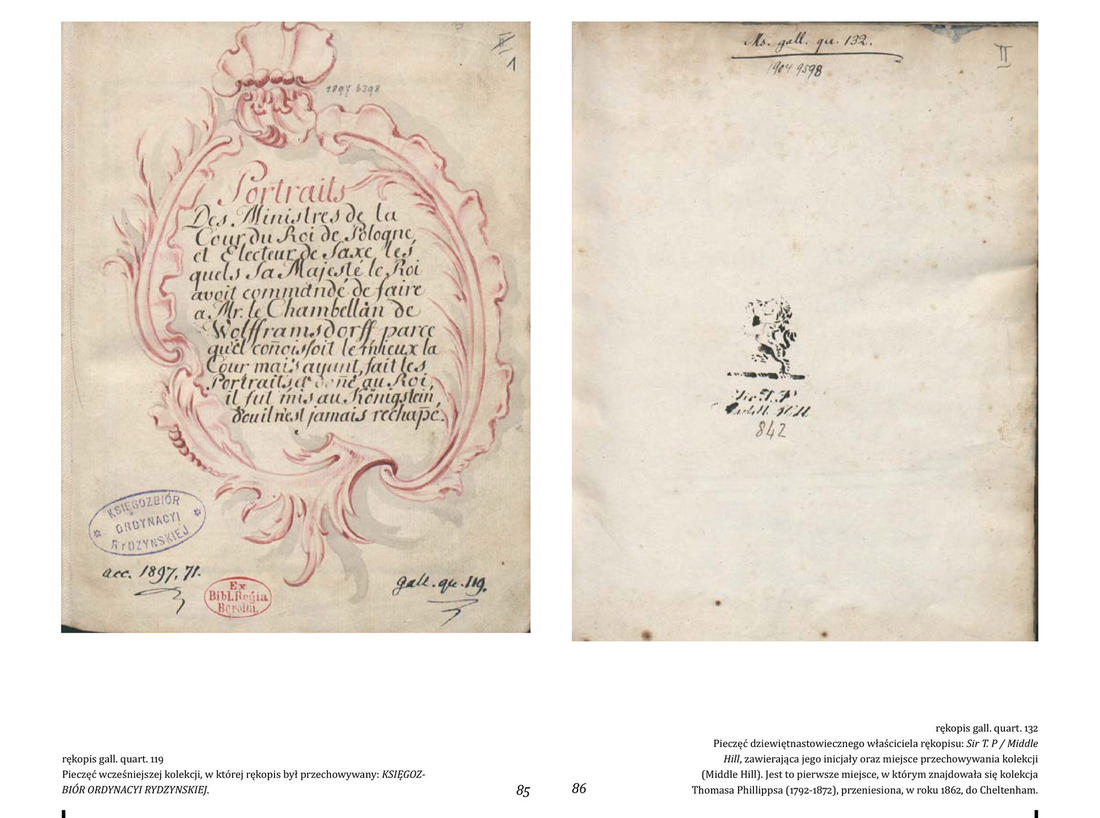 II
1
1897.6398
Portraits
Des Ministres de la
Cour du Roi de Pologne,
et Electeur de Saxe, les
quels Sa Majesté le Roi
avoit commandé de faire
a Mr. le Chambellan de
Wolfframsdorff parce
qu'el coñoisoit le mieux la
Cour mais ayant fait les
Portraits et doñé au Roi,
il fut mis au Königstein,
d'ouil n'est jamais rechapé.
KSIĘGOZBIÓR
ORDYNACYI
RYDZYNSKIEJ
acc. 1897, 71.
Ex
Bibl. Regia
Berolin.
gall. qu. 119.
rękopis gall. quart. 119
Pieczęć wcześniejszej kolekcji, w której rękopis był przechowywany: KSIĘGOZ-
BIÓR ORDYNACYI RYDZYNSKIEJ.
85
Ms. gall. qu. 132.
1904.9598
II
Sir T. P
Middle Hill
842
rękopis gall. quart. 132
Pieczęć dziewiętnastowiecznego właściciela rękopisu: Sir T. P / Middle
Hill, zawierająca jego inicjały oraz miejsce przechowywania kolekcji
(Middle Hill). Jest to pierwsze miejsce, w którym znajdowała się kolekcja
Thomasa Phillippsa (1792-1872), przeniesiona, w roku 1862, do Cheltenham.
86